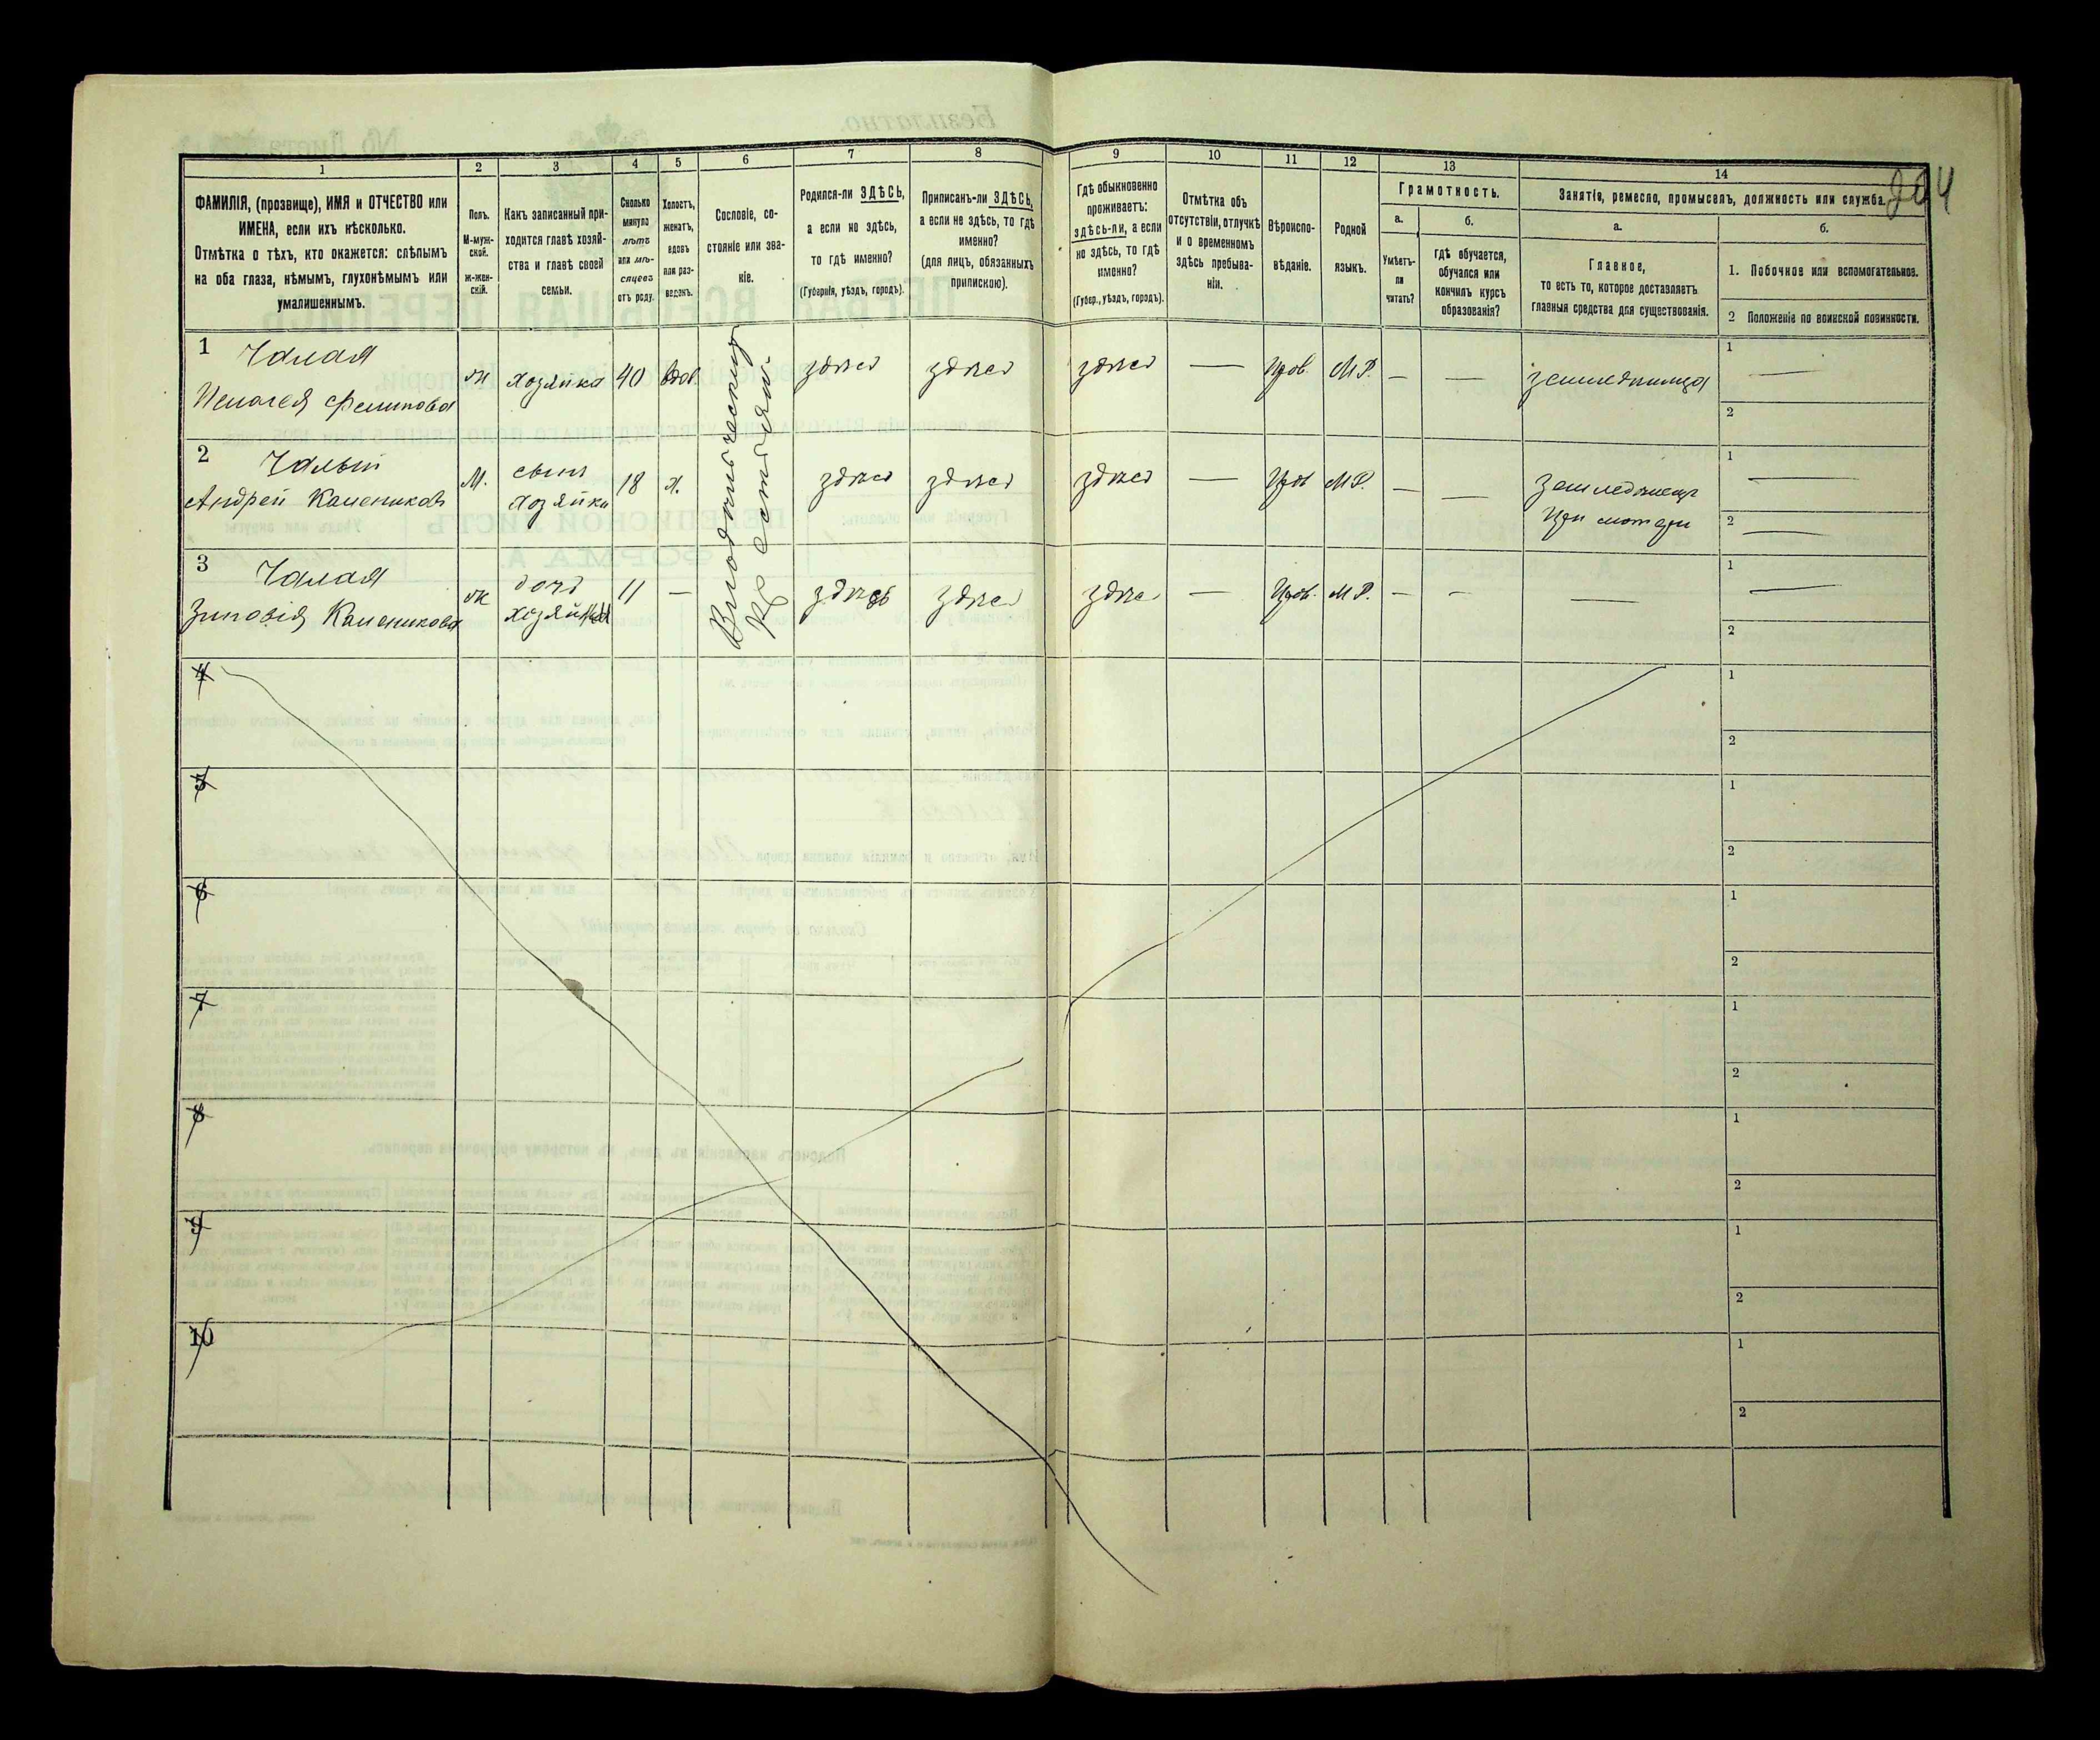 204
1
2
3
4
5
6
7
8
9
10
11
12
13
14
ФАМИЛІЯ, (прозвище), ИМЯ и ОТЧЕСТВО или
ИМЕНА, если ихъ нѣсколько.
Отмѣтка о тѣхъ, кто окажется: слѣпымъ
на оба глаза, нѣмымъ, глухонѣмымъ или
умалишеннымъ.
Полъ.
М-муж-
ской.
Ж-жен-
скій.
Какъ записанный при-
ходится главѣ хозяй-
ства и главѣ своей
семьи.
Сколько
минуло
лѣтъ
или мѣ-
сяцевъ
отъ роду.
Холостъ,
женатъ,
вдовъ
или раз-
веденъ.
Сословіе, со-
стояніе или зва-
ніе.
Родился-ли ЗДѢСЬ,
а если не здѣсь,
то гдѣ именно?
(Губернія, уѣздъ, городъ).
Приписанъ-ли ЗДѢСЬ,
а если не здѣсь, то гдѣ
именно?
(для лицъ, обязанныхъ
припискою).
Гдѣ обыкновенно
проживаетъ:
здѣсь-ли, а если
не здѣсь, то гдѣ
именно?
(Губер., уѣздъ, городъ).
Отмѣтка объ
отсутствіи, отлучкѣ
и о временномъ
здѣсь пребыва-
ніи.
Вѣроиспо-
вѣданіе.
Родной
языкъ.
Грамотность.
а.
Умѣетъ-
ли
читать?
б.
Гдѣ обучается,
обучался или
кончилъ курсъ
образованія?
Занятіе, ремесло, промыселъ, должность или служба.
а.
Главное,
то есть то, которое доставляетъ
главныя средства для существованія.
б.
1. Побочное или вспомогательное.
2 Положеніе по воинской повинности.
1 Чалая
Пелагея Филипова
ж хозяйка 40 вдов. здѣсь здѣсь здѣсь — прав. М.Р. — — земледѣлица
1 —
2
2 Чалый
Андрей Калениковъ
М. сынъ
хозяйки
18 х. здѣсь здѣсь здѣсь — прав М.Р. — — земледѣлецъ
при матери
1 —
2 —
3 Чалая
Зиновія Каленикова
ж дочь
хозяйки
11 — здѣсь здѣсь здѣсь — прав. М.Р. — — —
1 —
2
крестьян.
4
1
2
5
1
2
6
1
2
7
1
2
8
1
2
9
1
2
10
1
2